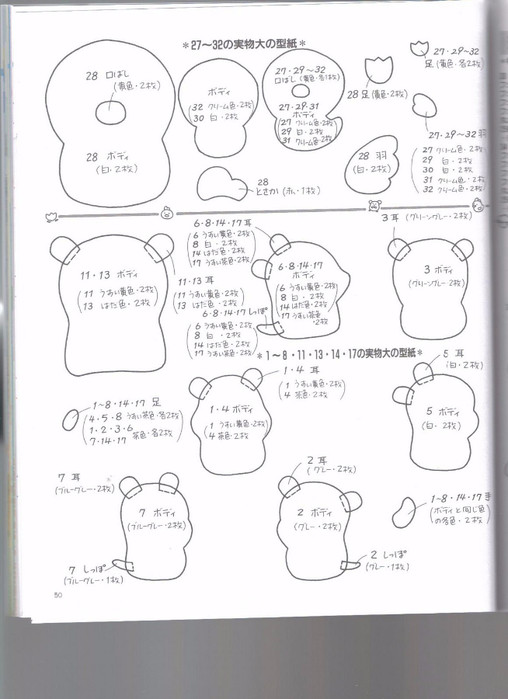 *27〜32の実物大の型紙*
28 口ばし
(黄色・2枚)
28 ボディ
(白・2枚)
ボディ
(32 クリーム色・2枚
30 白・2枚)
27・29〜32
口ばし(黄色・各1枚)
27・29・31
ボディ
(27 クリーム色・2枚
29 白・2枚
31 クリーム色・2枚)
28 足(黄色・2枚)
27・29〜32
足(黄色・各2枚)
28 羽
(白・2枚)
27・29〜32 羽
(27 クリーム色・2枚
29 白・2枚
30 白・2枚
31 クリーム色・2枚
32 クリーム色・2枚)
28
とさか(赤・1枚)
11・13 ボディ
(11 うすい黄色・2枚
13 はだ色・2枚)
11・13 耳
(11 うすい黄色・2枚
13 はだ色・2枚)
6・8・14・17 耳
(6 うすい黄色・2枚
8 白・2枚
14 はだ色・2枚
17 うすい茶色・2枚)
6・8・14・17
ボディ
(6 うすい黄色・2枚
8 白・2枚
14 はだ色・2枚
17 うすい茶色
・2枚)
6・8・14・17 しっぽ
(6 うすい黄色・2枚
8 白・2枚
14 はだ色・2枚
17 うすい茶色・2枚)
3 耳(グリーングレー・2枚)
3 ボディ
(グリーングレー・2枚)
*1〜8・11・13・14・17の実物大の型紙*
1〜8・14・17 足
(4・5・8 うすい茶色・各2枚
1・2・3・6
7・14・17 茶色・各2枚)
1・4 耳
(1 うすい黄色・2枚
4 茶色・2枚)
1・4 ボディ
(1 うすい黄色・2枚
4 茶色・2枚)
5 耳
(白・2枚)
5 ボディ
(白・2枚)
7 耳
(ブルーグレー・2枚)
7 ボディ
(ブルーグレー・2枚)
7 しっぽ
(ブルーグレー・1枚)
2 耳
(グレー・2枚)
2 ボディ
(グレー・2枚)
2 しっぽ
(グレー・1枚)
1〜8・14・17 手
(ボディと同じ色
の各色・2枚)
50